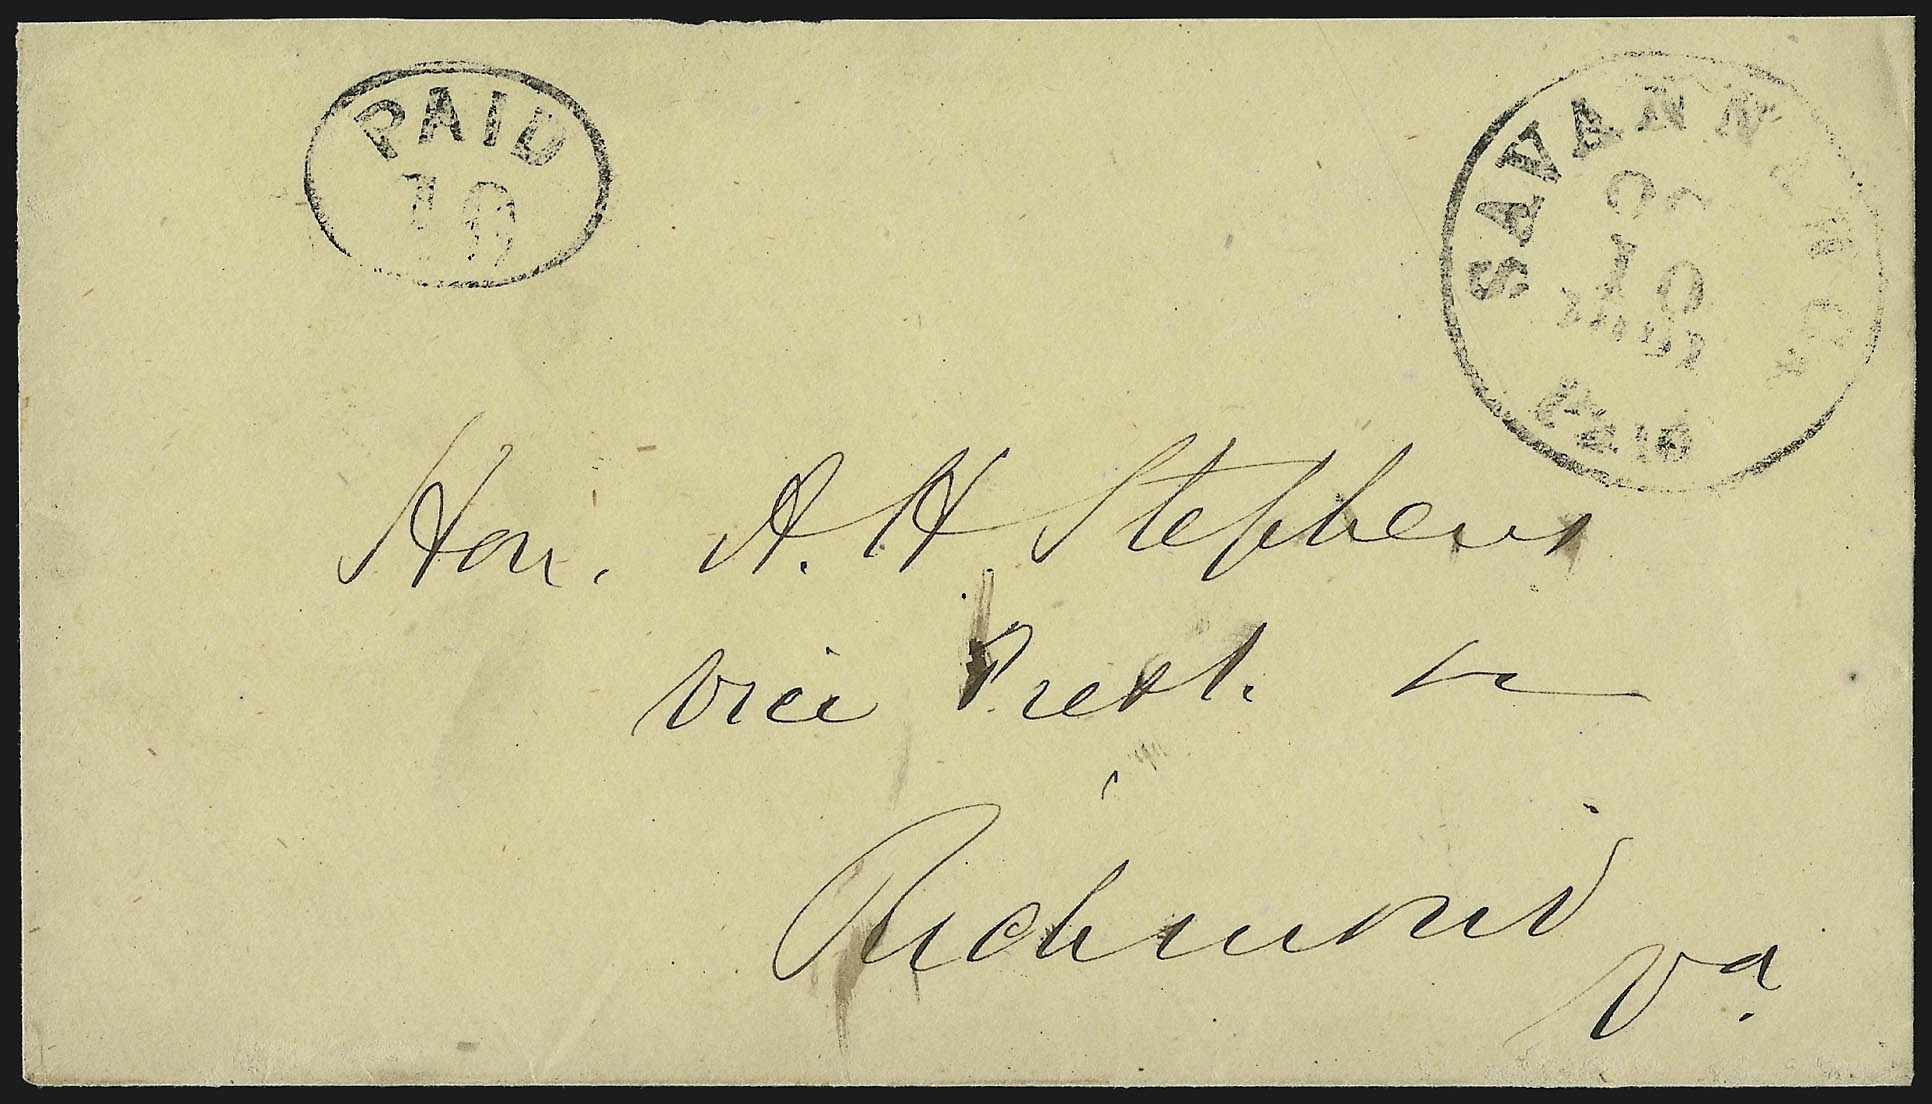 PAID
10
SAVANNAH GA
OC
10
1861
PAID
Hon. A. H Stephens
Vice Prest.
Richmond
Va.